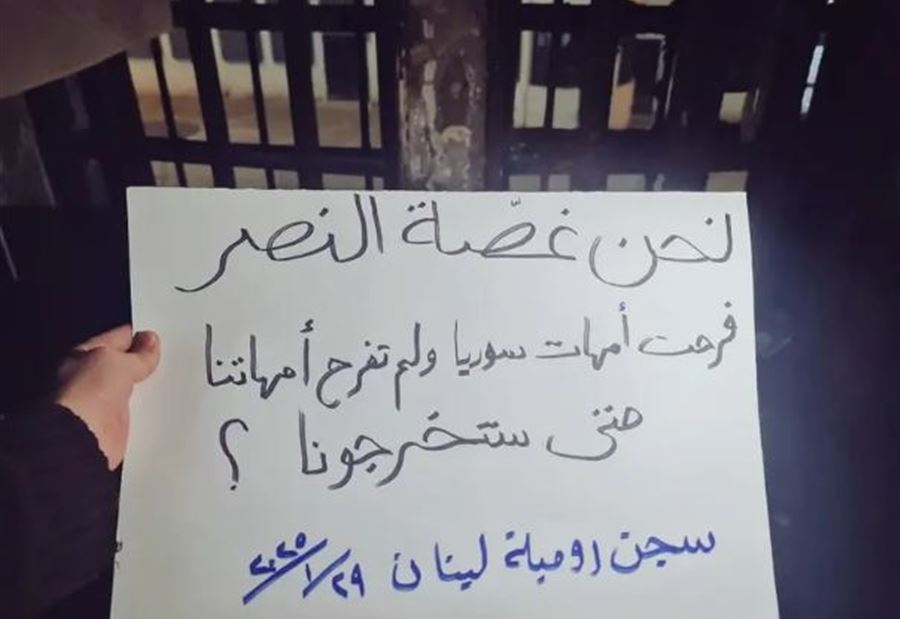 نحن غصّة النصر
فرحت أمهات سوريا ولم تفرح أمهاتنا
متى ستخرجونا ؟
سجن رومية لبنان ٢٩/١/٢٠٢٥